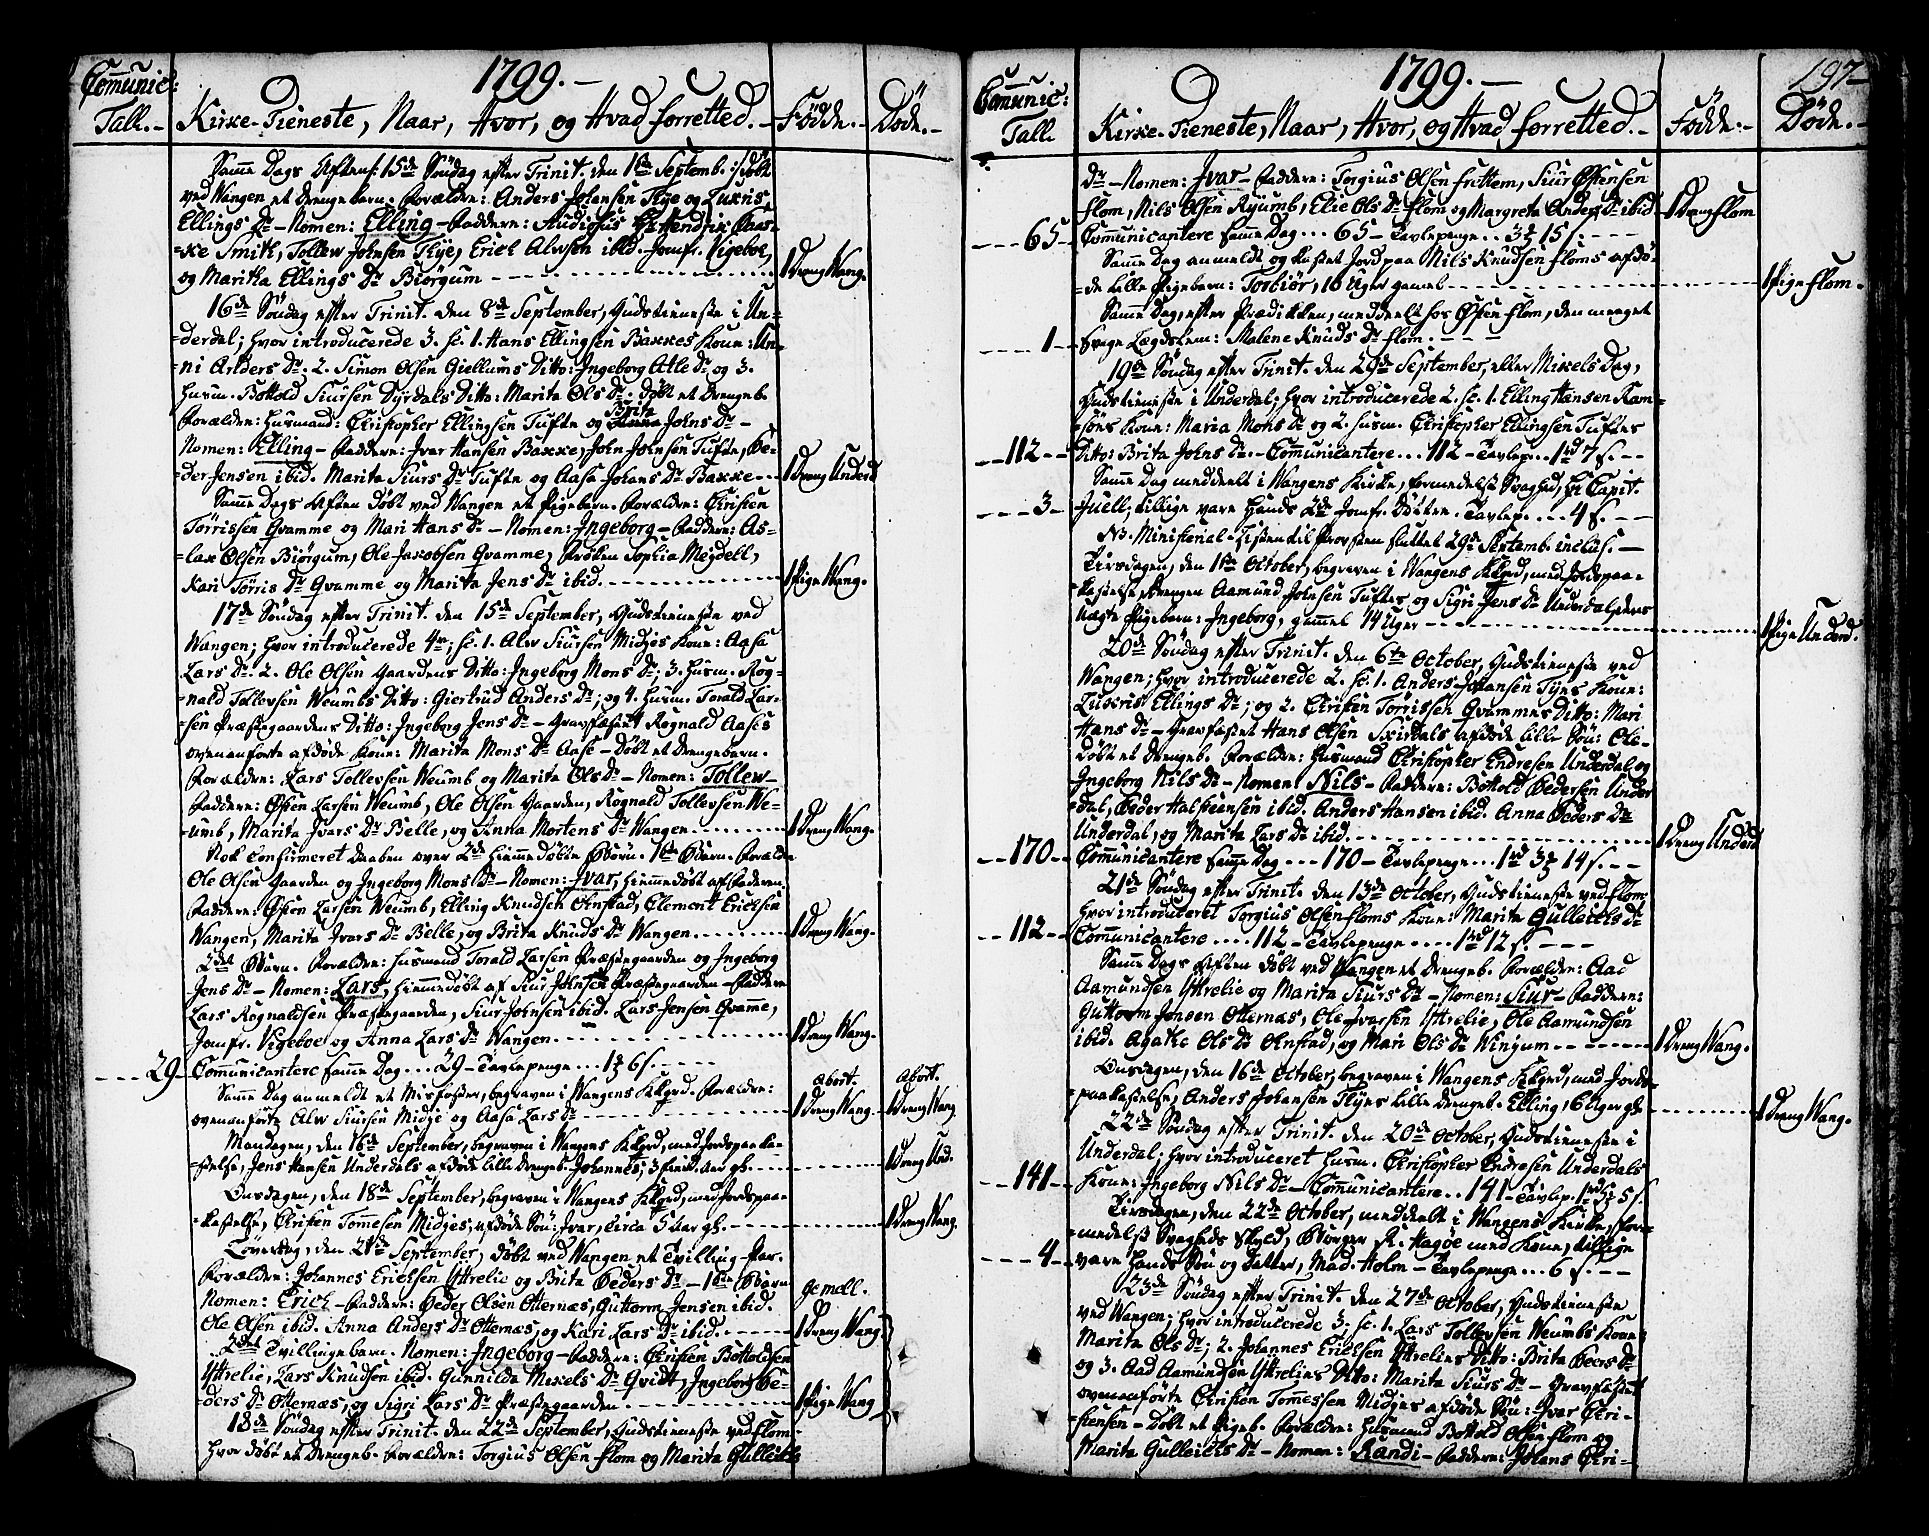 Comunic:
Tall.
1799.
Kirke-Tieneste, Naar, Hvor, og Hvad forretted.
Födde.
Döde.
Samme Dags Aften: 15de Söndag efter Trinit. den 1ste Septemb. döbt
ved Wangen et Drengebarn. Forældre: Anders Johansen Flye og Luxris
Ellings Dr - Nomen: Elling - Faddere: Hendrik
Smith, Tollew Johnsen Flye, Erich Alvsen ibid. Jomfr. Vigeboe,
og Maritha Ellings Dr Biörgum
1 Dreng Wang.
16de Söndag efter Trinit. den 8de September, Gudstieneste i Un-
derdal; hvor introducerede 3. sc. 1. Hans Ellingsen Backes Kone: Un-
ni Arders Dr. 2. Simon Olsen Giellums Ditto: Ingeborg Atle Dr og 3.
Husm. Bottold Siursen Dyrdals Ditto: Marita Ols Dr. Döbt et Drengeb.
Forældre: Husmand: Christopher Ellingsen Tufte og Brita Johns Dr -
Nomen: Elling - Faddere: Ivar Hansen Backe, John Johnsen Tufte, Pe-
der Jensen ibid. Marita Siurs Dr Tufte og Aasa Johans Dr Backe
1 Dreng Underd
Samme Dags Aften döbt ved Wangen et Pigebarn. Forældre: Christen
Törrissen Qvamme og Mari Hans Dr - Nomen: Ingeborg - Faddere: As-
lax Olsen Biörgum, Ole Jacobsen Qvamme, Fröken Sophia Meydell,
Kari Törris Dr Qvamme og Marita Jens Dr ibid.
1 Pige Wang.
17de Söndag efter Trinit. den 15de September, Gudstieneste ved
Wangen; hvor introducerede 4re; sc. 1. Alv Siursen Midjes Kone: Aasa
Lars Dr. 2. Ole Olsen Gaardens Ditto: Ingeborg Mons Dr; 3. Husm. Rog-
nald Tollevsen Weumbs Ditto: Giertrud Anders Dr; og 4. Husm. Torald Lar-
sen Præstegaardens Ditto: Ingeborg Jens Dr - Gravfæstet Rognald Aases
ovenanförte afdöde Kone: Marita Mons Dr Aase - Döbt et Drengebarn.
Forældre: Lars Tollevsen Weumb og Marita Ols Dr - Nomen: Tollew -
Faddere: Östen Larsen Weumb, Ole Olsen Gaarden, Rognald Tollevsen We-
umb, Marita Ivars Dr Belle, og Anna Mortens Dr Wangen
1 Dreng Wang.
Nok Confirmeret Daaben over 2de hiemmedöbte Börn. 1ste Barn. Forældre
Ole Olsen Gaarden og Ingeborg Mons Dr - Nomen: Ivar, hiemmedöbt af Faderen.
Faddere: Östen Larsen Weumb, Elling Knudsen Onstad, Clement Erichsen
Wangen, Marita Ivars Dr Belle, og Brita Knuds Dr Wangen
1 Dreng Wang.
2det Barn. Forældre: Husmand Torald Larsen Præstegaarden og Ingeborg
Jens Dr - Nomen: Lars, hiemmedöbt af Siur Johnsen Præstegaarden - Faddere
Lars Rognaldsen Præstegaarden, Siur Johnsen ibid. Lars Jensen Qvamme,
Jomfr. Vigeboe og Anna Lars Dr Wangen
1 Dreng Wang.
29 Comunicantere samme Dag ... 29 - Tavlepenge ... 1 6 s.
Samme Dag anmeldt et Misfoster, begraven i Wangens Kkgrd. Forældre:
ovenanförte Alv Siursen Midje og Aasa Lars Dr
abort. 1 Dreng Wang. abort. 1 Dreng Wang
Mandagen, den 16de September, begraven i Wangens Kkgrd, med Jordspaaka-
stelse, Jens Hansen Underdals afdöde lille Drengeb. Johannes, 3 fierd. Aar gl.
1 Dreng Und.
Onsdagen, den 18de September, begraven i Wangens Kkgrd, med Jordspaa-
kastelse, Christen Tommesen Midjes, afdöde Sön: Ivar, circa 5 Aar gl.
1 Dreng Wang.
Löverdag, den 21de September, döbt ved Wangen et Tvilling-Par.
Forældre: Johannes Erichsen Yttrelie og Brita Peders Dr - 1ste Barn
Nomen: Erich - Faddere: Peder Olsen Otternæs, Guttorm Jensen ibid.
Ole Olsen ibid. Anna Anders Dr Otternæs, og Kari Lars Dr ibid.
gemell. 1 Dreng Wang
2det Tvillingebarn. Nomen: Ingeborg - Faddere: Christen Bottoldsen
Yttrelie, Lars Knudsen ibid. Gunnilda Mikels Dr Qvidt, Ingeborg Pe-
ders Dr Otternæs, og Sigri Lars Dr Præstegaarden
1 Pige Wang
18de Söndag efter Trinit. den 22de September, Gudstieneste ved Flom.
hvor döbt et Drengeb. Forældre: Torgius Olsen Flom og Marita Gulleichs
Comunic:
Tall.
1799.
197
Kirke-Tieneste, Naar, Hvor, og Hvad forretted.
Födde.
Döde.
Dr - Nomen: Ivar - Faddere: Torgius Olsen Frettem, Siur Östensen
Flom, Nils Olsen Ryumb, Elie Ols Dr Flom og Margreta Anders Dr ibid
1 Dreng Flom
65 Communicantere samme Dag ... 65 - Tavlepenge .. 3 15 s.
Samme Dag anmeldt og kastet Jord paa Nils Knudsen Floms afdö-
de lille Pigebarn: Torbiör, 16 Uger gamel
1 Pige Flom.
Samme Dag, efter Prædikken, meddeelt hos Östen Flom, den meeget
1 svage Lægdslem: Malene Knuds Dr Flom.
19de Söndag efter Trinit. den 29de September, eller Mikels Dag,
Gudstieneste i Underdal; hvor introducerede 2. sc. 1. Elling Hansen Ram-
söns Kone: Maria Mons Dr og 2. Husm. Christopher Ellingsen Tuftes
112 Ditto: Brita Johns Dr. - Comunicantere ... 112 - Tavlep. .. 1rd 7 s.
Samme Dag meddeelt i Wangens Kirke, formedelst Svaghed, Hr Capit.
3 Juell; tillige vare Hands 2de Jomfr. Döttre. Tavlep. ... 4 s.
NB. Ministerial-Listen til Provsten sluttet 29de Septemb. inclus.
Tirsdagen, den 1ste October, begraven i Wangens Kkgrd, med Jordspaa-
kastelse Drengen Aamund Johnsen Tuftes og Sigri Jens Dr Underdals deres
uægte Pigebarn: Ingeborg, gammel 14 Uger
1 Pige Underd.
20de Söndag efter Trinit. den 6te October, Gudstieneste ved
Wangen; hvor introducerede 2. sc. 1. Anders Johansen Flyes Kone:
Luxris Ellings Dr; og 2. Christen Törrissen Qvammes Ditto: Mari
Hans Dr - Gravfæstet Hans Olsen Skirdals afdöde lille Sön: Ole -
Döbt et Drengeb. Forældre: Husmand Christopher Endresen Underdal og
Ingeborg Nils Dr - Nomen Nils - Faddere: Bottold Pedersen Under-
dal, Peder Halsteensen ibid. Anders Hansen ibid. Anna Peders Dr
Underdal, og Marita Lars Dr ibid.
1 Dreng Underd
170 Communicantere samme Dag ... 170 - Tavlepenge ... 1rd 3 14 s.
21de Söndag efter Trinit. den 13de October, Gudstieneste ved Flom,
hvor introduceret Torgius Olsen Floms Kone: Marita Gulleichs Dr
112 Communicantere .... 112 - Tavlepenge .... 1rd 12 s.
Samme Dags Aften döbt ved Wangen et Drengeb. Forældre: Aad
Aamundsen Yttrelie og Marita Siurs Dr - Nomen: Siur - Faddere:
Guttorm Jensen Otternæs, Ole Ivarsen Yttrelie, Ole Aamundsen
ibid. Agathe Ols Dr Onstad, og Mari Ols Dr Winjum
1 Dreng Wang.
Onsdagen, den 16de October, begraven i Wangens Kkgrd, med Jords-
paakastelse, Anders Johansen Flyes lille Drengeb. Elling, 6 Uger gl.
1 Dreng Wang.
22de Söndag efter Trinit. den 20de October, Gudstieneste i
Underdal; hvor introduceret Husm. Christopher Endresen Underdals
141 Kone: Ingeborg Nils Dr - Comunicantere .. 141 - Tavlep. 1rd 5 s.
Tirsdagen, den 22de October, meddeelt i Wangens Kirke, for-
medelst Svagheds skyld, Borger R. Hagöe med Kone, tillige
4 vare Hands Sön og Datter, Mad. Holm - Tavlepenge ... 6 s.
23de Söndag efter Trinit. den 27de October, Gudstieneste
ved Wangen; hvor introducerede 3. sc. 1. Lars Tollevsen Weumbs Kone
Marita Ols Dr; 2. Johannes Erichsen Yttrelies Ditto: Brita Peders Dr
og 3. Aad Aamundsen Yttrelies Ditto: Marita Siurs Dr - Gravfæstet
ovenanförte Christen Tommessen Midjes afdöde Sön: Ivar Chri-
stensen - Döbt et Pigeb. Forældre: Husmand Bottold Olsen Flom og
Marita Gulleichs Dr - Nomen: Randi - Faddere: Johans Chri-